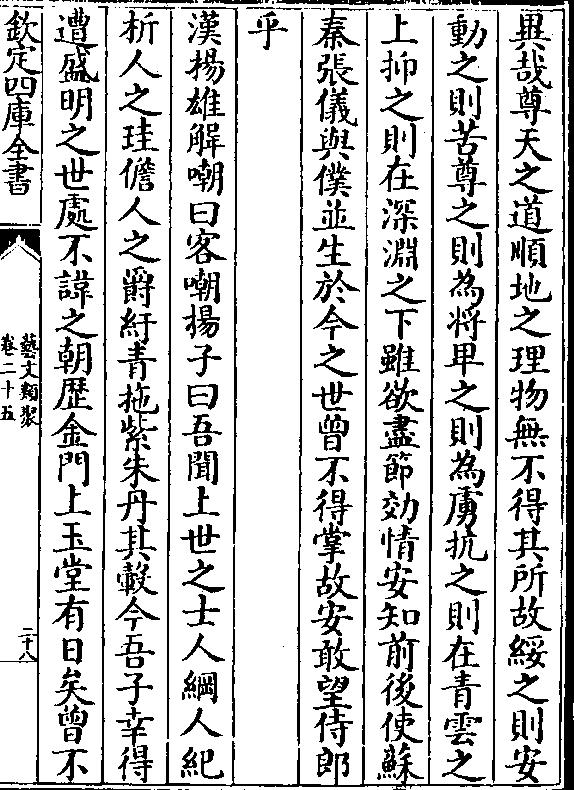 異哉尊天之道順地之理物無不得其所故綏之則安
動之則苦尊之則為將卑之則為虜抗之則在青雲之
上抑之則在深淵之下雖欲盡節効情安知前後使蘇
秦張儀與僕並生於今之世曾不得掌故安敢望侍郎
乎
漢揚雄解嘲曰客嘲揚子曰吾聞上世之士人綱人紀
析人之珪儋人之爵紆青拖紫朱丹其轂今吾子幸得
遭盛明之世處不諱之朝歴金門上玉堂有日矣曾不
欽定四庫全書
藝文類聚
卷二十五
二十八